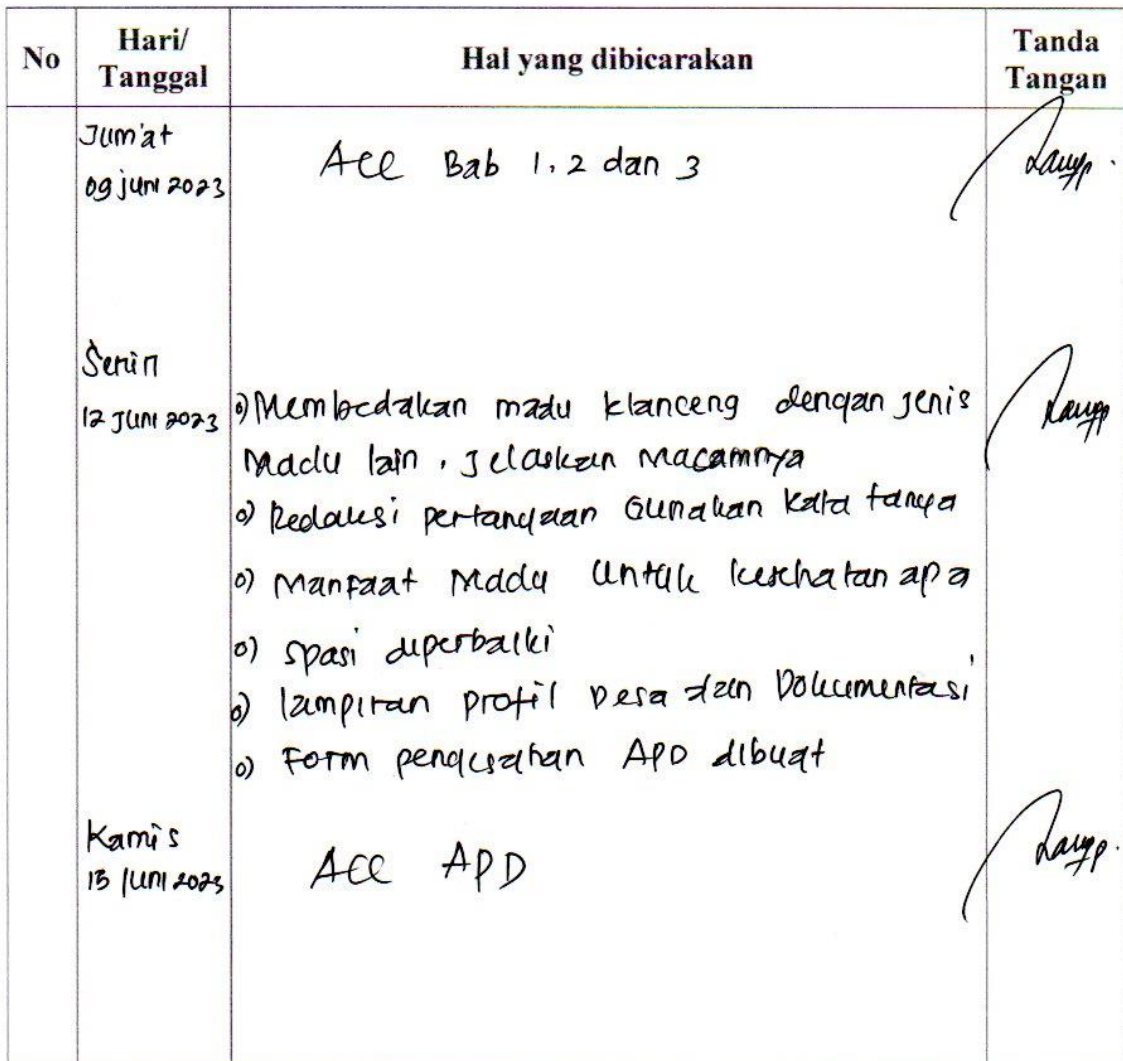 No
Hari/
Tanggal
Hal yang dibicarakan
Tanda
Tangan
Jum'at
09 juni 2023
Acc Bab 1, 2 dan 3
Senin
12 Juni 2023
o) Membedakan madu klanceng dengan jenis
Madu lain, Jelaskan Macamnya
o) Redaksi pertanyaan Gunakan kata tanya
o) Manfaat Madu Untuk kesehatan apa
o) spasi diperbaiki
o) lampiran profil Desa dan Dokumentasi
o) Form pengesahan APD dibuat
Kamis
15 Juni 2023
Acc APD